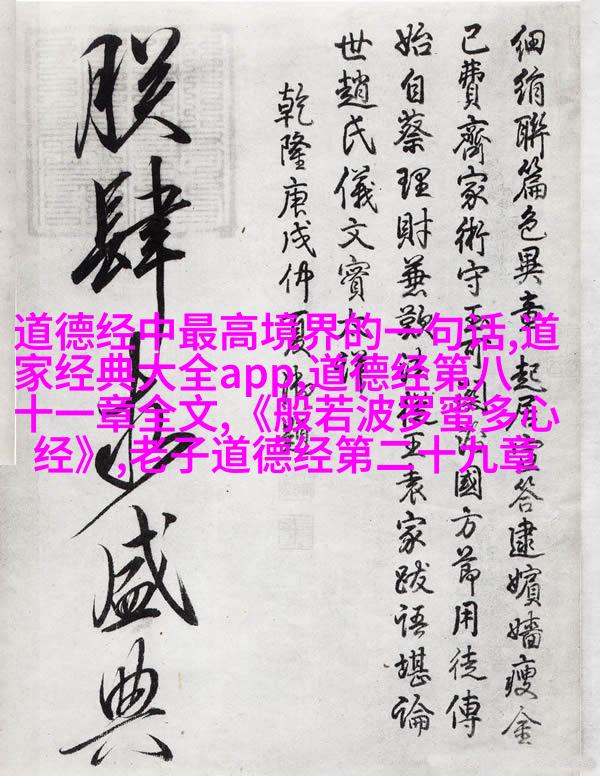 道德经中最高境界的一句话,道
家经典大全app,道德经第八
十一章全文,《般若波罗蜜多心
经》,老子道德经第二十九章
細絹聯篇色異章起居宜答逮嬪嬙瘦金
已費齊家術守國方節用徒傳
始自蔡理財兼歎王袁家跋語堪論
世趙氏儀文實大詳
乾隆庚戌仲夏御題
朕肆盛典